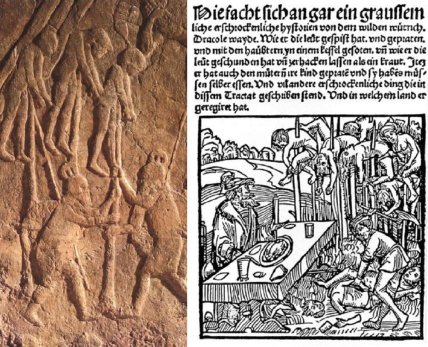 Hie facht sich an gar ein graussem
liche erschrockenliche hystorien von dem wilden wütrich.
Dracole wayde. Wie er die leüt gespist hat. vnd gepraten.
vnd mit den haübtern yn einem kessel gesoten. vñ wie er die
leüt geschunden hat vñ zerhacken lassen als ein kraut. Jtez
er hat auch den mütern ire kind gepratē vnd sy habēs müs-
sen selber essen. Vnd vil andere erschrockenliche ding die in
dissem Tractat geschriben stend. Vnd in welchem land er
geregiret hat.